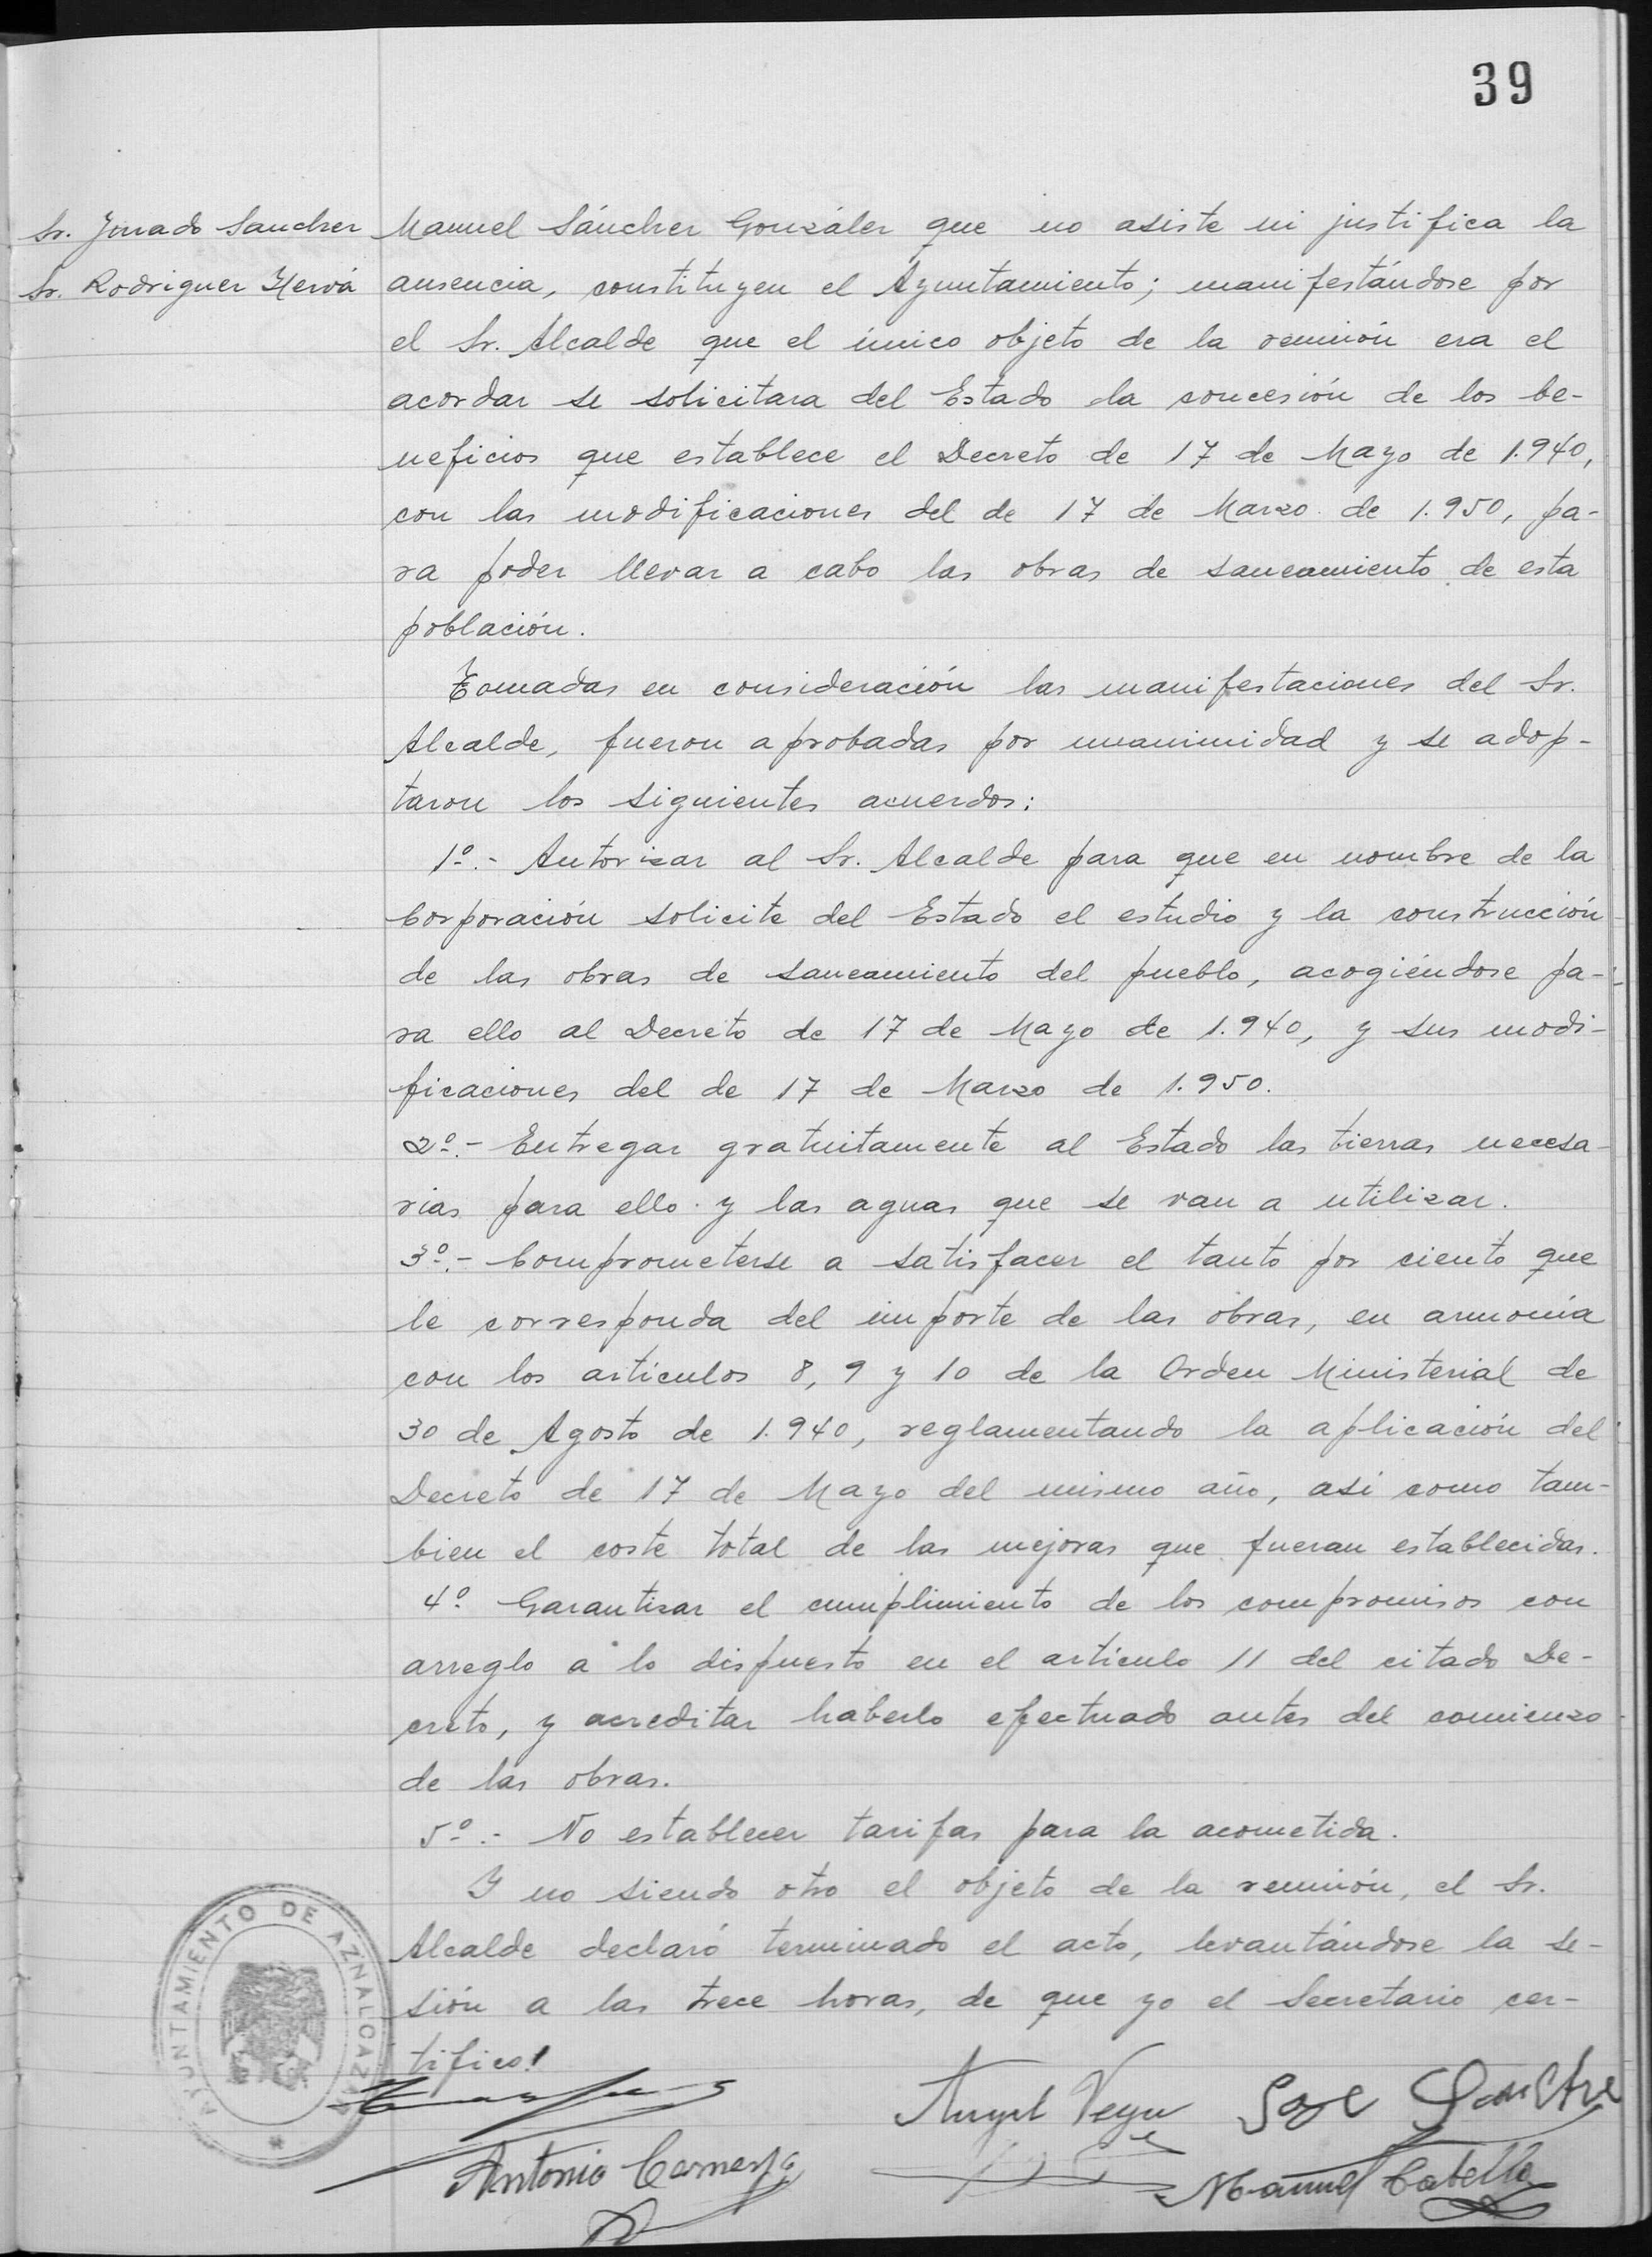 39
Sr. Jurado Sanchez
Sr. Rodriguez Hervá
Manuel Sánchez González que no asiste ni justifica la
ausencia, constituyen el Ayuntamiento; manifestándose por
el Sr. Alcalde que el único objeto de la reunión era el
acordar se solicitara del Estado la concesión de los be-
neficios que establece el Decreto de 17 de Mayo de 1.940,
con las modificaciones del de 17 de Marzo de 1.950, pa-
ra poder llevar a cabo las obras de saneamiento de esta
población.
Tomadas en consideración las manifestaciones del Sr.
Alcalde, fueron aprobadas por unanimidad y se adop-
taron los siguientes acuerdos:
1º.- Autorizar al Sr. Alcalde para que en nombre de la
Corporación solicite del Estado el estudio y la construcción
de las obras de saneamiento del pueblo, acogiéndose pa-
ra ello al Decreto de 17 de Mayo de 1.940, y sus modi-
ficaciones del de 17 de Marzo de 1.950.
2º.- Entregar gratuitamente al Estado las tierras necesa-
rias para ello y las aguas que se van a utilizar.
3º.- Comprometerse a satisfacer el tanto por ciento que
le corresponda del importe de las obras, en armonía
con los artículos 8, 9 y 10 de la Orden Ministerial de
30 de Agosto de 1.940, reglamentando la aplicación del
Decreto de 17 de Mayo del mismo año, asi como tam-
bien el coste total de las mejoras que fueran establecidas.
4º Garantizar el cumplimiento de los compromisos con
arreglo a lo dispuesto en el artículo 11 del citado De-
creto, y acreditar haberlo efectuado antes del comienzo
de las obras.
5º.- No establecer tarifas para la acometida.
Y no siendo otro el objeto de la reunión, el Sr.
Alcalde declaró terminado el acto, levantándose la se-
sión a las trece horas, de que yo el Secretario cer-
tifico.
AYUNTAMIENTO DE AZNALCAZAR
Angel Vega Jose
Antonio Manuel Cabello